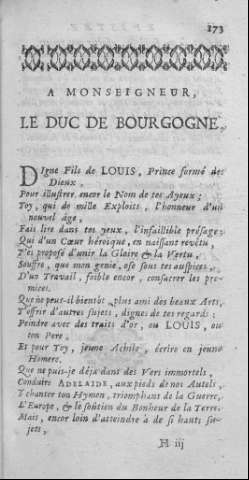 173
A MONSEIGNEUR,
LE DUC DE BOURGOGNE.
DIgne Fils de LOUIS, Prince formé des
Dieux,
Pour illustrer encor le Nom de tes Ayeux;
Toy, qui de mille Exploits, l'honneur d'un
nouvel âge,
Fais lire dans tes yeux, l'infaillible présage;
Qui d'un Cœur héroique, en naissant revêtu,
T'es proposé d'unir la Gloire & la Vertu,
Souffre, que mon genie, ose sous tes auspices,
D'un Travail, foible encor, consacrer les pre-
mices.
Que ne peut-il bientôt, plus ami des beaux Arts,
T'offrir d'autres sujets, dignes de tes regards;
Peindre avec des traits d'or, ou LOUIS, ou
ton Pere,
Et pour Toy, jeune Achile, écrire en jeune
Homere.
Que ne puis-je déja dans des Vers immortels,
Conduire ADELAIDE, aux pieds de nos Autels,
Y chanter ton Hymen, triomphant de la Guerre,
L'Europe, & le soûtien du Bonheur de la Terre.
Mais, encor loin d'atteindre à de si hauts su-
jets,
H iij